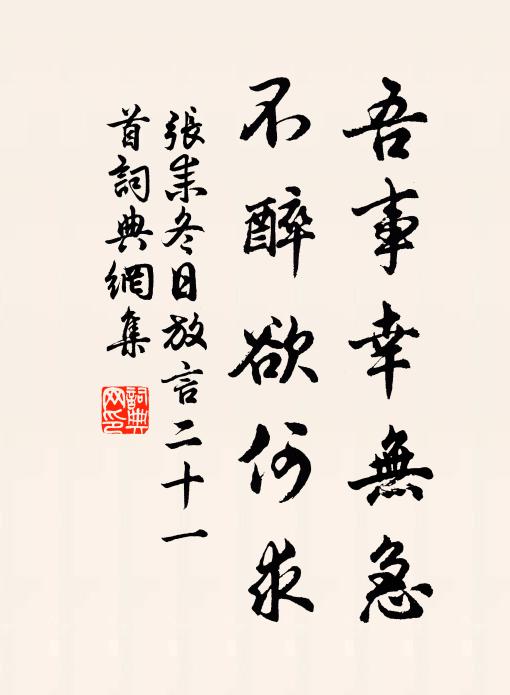 吾事幸無急
不醉欲何求
張耒冬日放言二十一
首詞典網集
詞典
网印